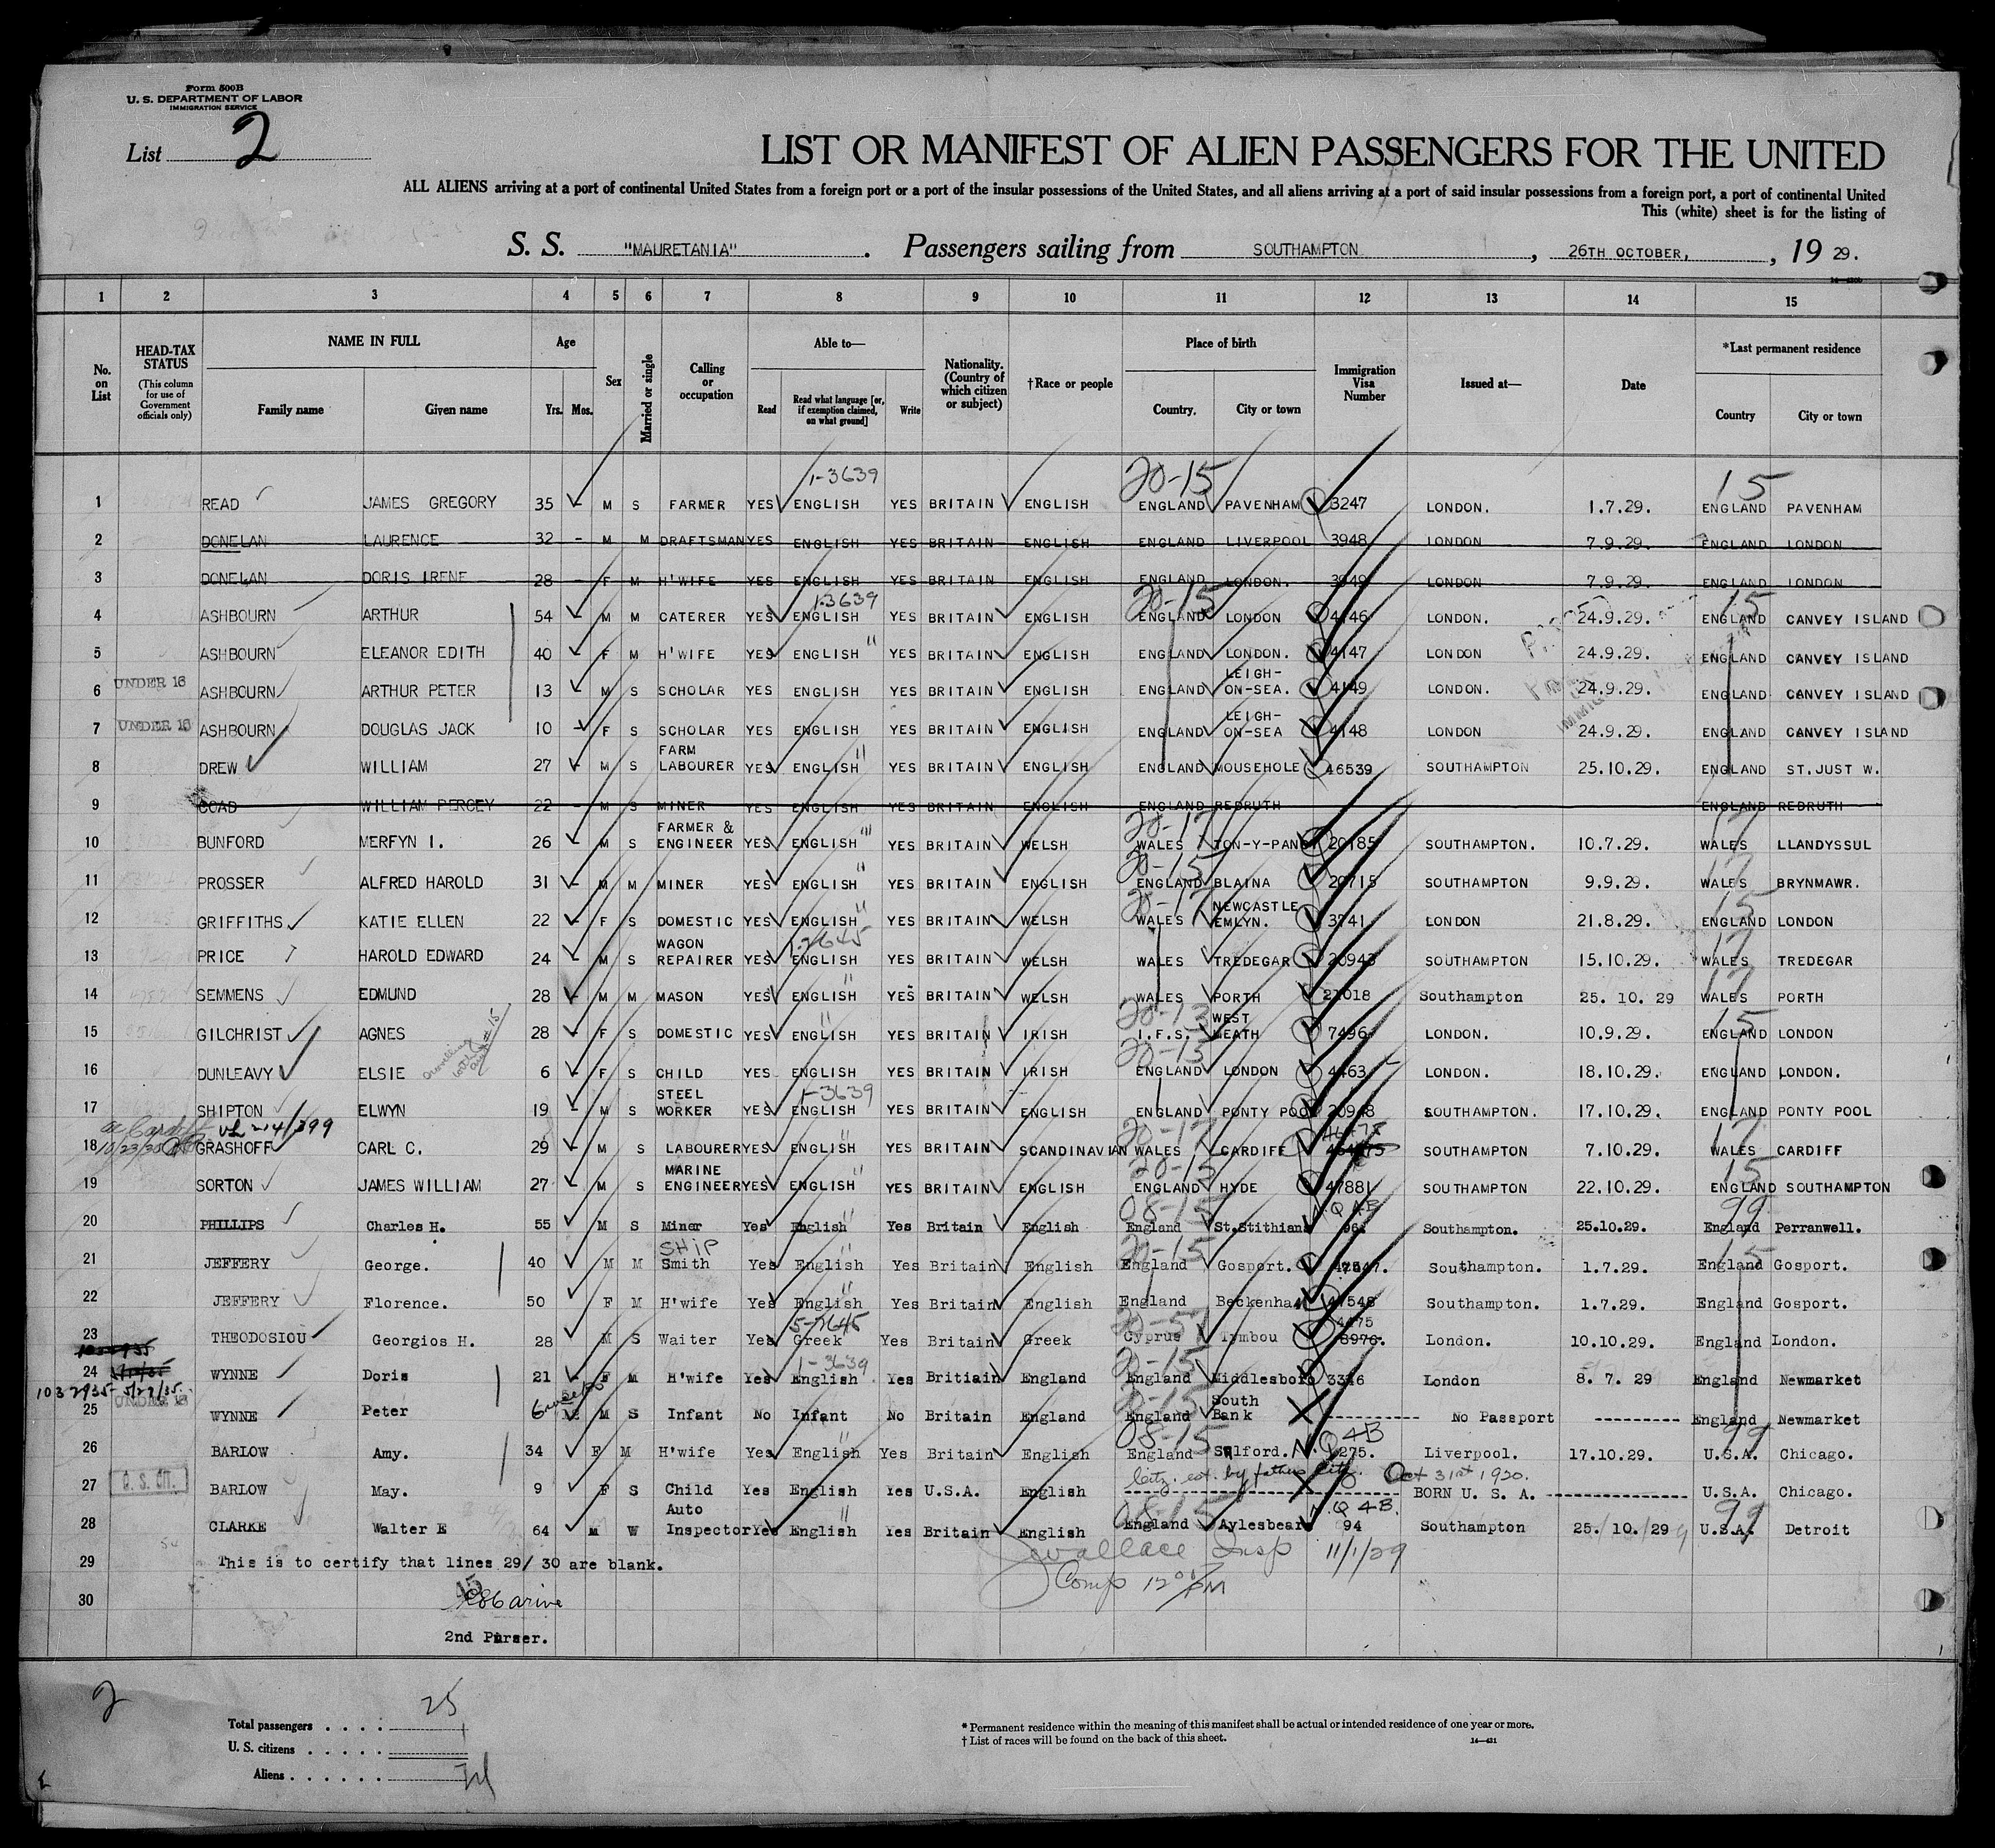 Form 500B
U. S. DEPARTMENT OF LABOR
IMMIGRATION SERVICE
List 2
LIST OR MANIFEST OF ALIEN PASSENGERS FOR THE UNITED
ALL ALIENS arriving at a port of continental United States from a foreign port or a port of the insular possessions of the United States, and all aliens arriving at a port of said insular possessions from a foreign port, a port of continental United
This (white) sheet is for the listing of
S. S. "MAURETANIA". Passengers sailing from SOUTHAMPTON, 26TH OCTOBER, , 19 29.
1 2 3 4 5 6 7 8 9 10 11 12 13 14 15
No. on List
HEAD-TAX STATUS (This column for use of Government officials only)
NAME IN FULL Family name Given name
Age Yrs. Mos.
Sex
Married or single
Calling or occupation
Able to— Read Read what language [or, if exemption claimed, on what ground] Write
Nationality. (Country of which citizen or subject)
†Race or people
Place of birth Country. City or town
Immigration Visa Number
Issued at—
Date
*Last permanent residence Country City or town
1-3639 20-15 15
1 READ JAMES GREGORY 35 - M S FARMER YES ENGLISH YES BRITAIN ENGLISH ENGLAND PAVENHAM 3247 LONDON. 1.7.29. ENGLAND PAVENHAM
2 DONELAN LAURENCE 32 - M M DRAFTSMAN YES ENGLISH YES BRITAIN ENGLISH ENGLAND LIVERPOOL 3948 LONDON 7.9.29. ENGLAND LONDON
3 DONELAN DORIS IRENE 28 - F M H'WIFE YES ENGLISH YES BRITAIN ENGLISH ENGLAND LONDON. 3949 LONDON 7.9.29. ENGLAND LONDON
1-3639 20-15 15
4 ASHBOURN ARTHUR 54 - M M CATERER YES ENGLISH YES BRITAIN ENGLISH ENGLAND LONDON 4146 LONDON. 24.9.29. ENGLAND CANVEY ISLAND
5 ASHBOURN ELEANOR EDITH 40 - F M H'WIFE YES ENGLISH " YES BRITAIN ENGLISH ENGLAND LONDON. 4147 LONDON 24.9.29. ENGLAND CANVEY ISLAND
6 UNDER 16 ASHBOURN ARTHUR PETER 13 - M S SCHOLAR YES ENGLISH YES BRITAIN ENGLISH ENGLAND LEIGH-ON-SEA. 4149 LONDON. 24.9.29. ENGLAND CANVEY ISLAND
7 UNDER 16 ASHBOURN DOUGLAS JACK 10 - F S SCHOLAR YES ENGLISH YES BRITAIN ENGLISH ENGLAND LEIGH-ON-SEA 4148 LONDON 24.9.29. ENGLAND CANVEY ISLAND
8 DREW WILLIAM 27 - M S FARM LABOURER YES ENGLISH " YES BRITAIN ENGLISH ENGLAND MOUSEHOLE 46539 SOUTHAMPTON 25.10.29. ENGLAND ST.JUST W.
9 COAD WILLIAM PERCEY 22 - M S MINER YES ENGLISH YES BRITAIN ENGLISH ENGLAND REDRUTH ENGLAND REDRUTH
20-17 17
10 BUNFORD MERFYN I. 26 - M S FARMER & ENGINEER YES ENGLISH " YES BRITAIN WELSH WALES TON-Y-PANDY 20185 SOUTHAMPTON. 10.7.29. WALES LLANDYSSUL
20-15 17
11 PROSSER ALFRED HAROLD 31 - M M MINER YES ENGLISH " YES BRITAIN ENGLISH ENGLAND BLAINA 20715 SOUTHAMPTON 9.9.29. WALES BRYNMAWR.
20-17 15
12 GRIFFITHS KATIE ELLEN 22 - F S DOMESTIC YES ENGLISH " YES BRITAIN WELSH WALES NEWCASTLE EMLYN. 3741 LONDON 21.8.29. ENGLAND LONDON
1-2645 17
13 PRICE HAROLD EDWARD 24 - M S WAGON REPAIRER YES ENGLISH YES BRITAIN WELSH WALES TREDEGAR 20943 SOUTHAMPTON 15.10.29. WALES TREDEGAR
17
14 SEMMENS EDMUND 28 - M M MASON YES ENGLISH " YES BRITAIN WELSH WALES PORTH 21018 Southampton 25. 10. 29 WALES PORTH
20-13 15
15 GILCHRIST AGNES 28 - F S DOMESTIC YES ENGLISH " YES BRITAIN IRISH I.F.S. WEST MEATH 7496 LONDON. 10.9.29. ENGLAND LONDON
travelling with aunt #15 20-15
16 DUNLEAVY ELSIE 6 - F S CHILD YES ENGLISH YES BRITAIN IRISH ENGLAND LONDON 4463 LONDON. 18.10.29. ENGLAND LONDON.
1-3639
17 SHIPTON ELWYN 19 - M S STEEL WORKER YES ENGLISH YES BRITAIN ENGLISH ENGLAND PONTY POOL 20948 SOUTHAMPTON. 17.10.29. ENGLAND PONTY POOL
20-17 17
18 10/23/30 GRASHOFF CARL C. 29 - M S LABOURER YES ENGLISH YES BRITAIN SCANDINAVIAN WALES CARDIFF SOUTHAMPTON 7.10.29. WALES CARDIFF
20-15 15
19 SORTON JAMES WILLIAM 27 - M S MARINE ENGINEER YES ENGLISH " YES BRITAIN ENGLISH ENGLAND HYDE 47881 SOUTHAMPTON 22.10.29. ENGLAND SOUTHAMPTON
08-15 N.Q 4B 99
20 PHILLIPS Charles H. 55 M S Miner Yes English " Yes Britain English England St.Stithians 96 Southampton. 25.10.29. England Perranwell.
SHIP 20-15 15
21 JEFFERY George. 40 M M Smith Yes English " Yes Britain English England Gosport. 47547. Southampton. 1.7.29. England Gosport.
22 JEFFERY Florence. 50 F M H'wife Yes English " Yes Britain English England Beckenham 47548 Southampton. 1.7.29. England Gosport.
5-2645 20-57 4475
23 THEODOSIOU Georgios H. 28 M S Waiter Yes Greek Yes Britain Greek Cyprus Tymbou 3976. London. 10.10.29. England London.
1-3639 20-15
24 WYNNE Doris 21 - F M H'wife Yes English Yes Britiain England England Middlesboro 3346 London 8. 7. 29 England Newmarket
103 2935 5/27/35 UNDER 16 20-15
25 WYNNE Peter 6 mos M S Infant No Infant No Britain England England South Bank ---------- No Passport --------- England Newmarket
08-15 N.Q 4B 99
26 BARLOW Amy. 34 F M H'wife Yes English " Yes Britain English England Salford. 275. Liverpool. 17.10.29. U.S.A. Chicago.
Citz. est. by fathers citz. Oct 31st 1920.
27 U. S. CIT. BARLOW May. 9 F S Child Yes English Yes U.S.A. English ---------- BORN U. S. A. ---------- U.S.A. Chicago.
08-15 N.Q 4B. 99
28 CLARKE Walter E 64 M W Auto Inspector Yes English " Yes Britain English England Aylesbear 94 Southampton 25. 10. 29 U.S.A. Detroit
29 This is to certify that lines 29/ 30 are blank.
Wallace Insp 11/1/29
Comp 12 PM
30
2nd Purser.
2
Total passengers . . . . 25
U. S. citizens . . . . . 1
Aliens . . . . . . 24
* Permanent residence within the meaning of this manifest shall be actual or intended residence of one year or more.
† List of races will be found on the back of this sheet.
14—431